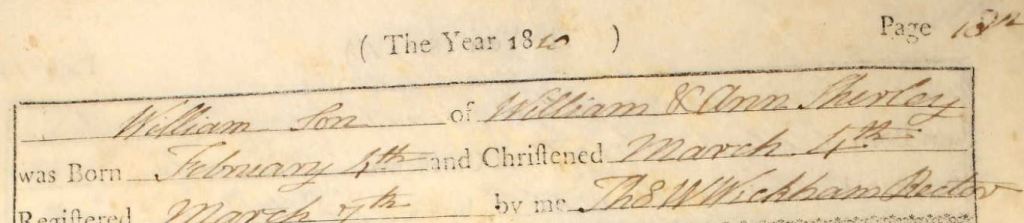 ( The Year 1810 ) Page
William Son of William & Ann Sherley
was Born February 4th and Chriſtened March 4th
Registered March 7th by me Thos W Wickham Rector